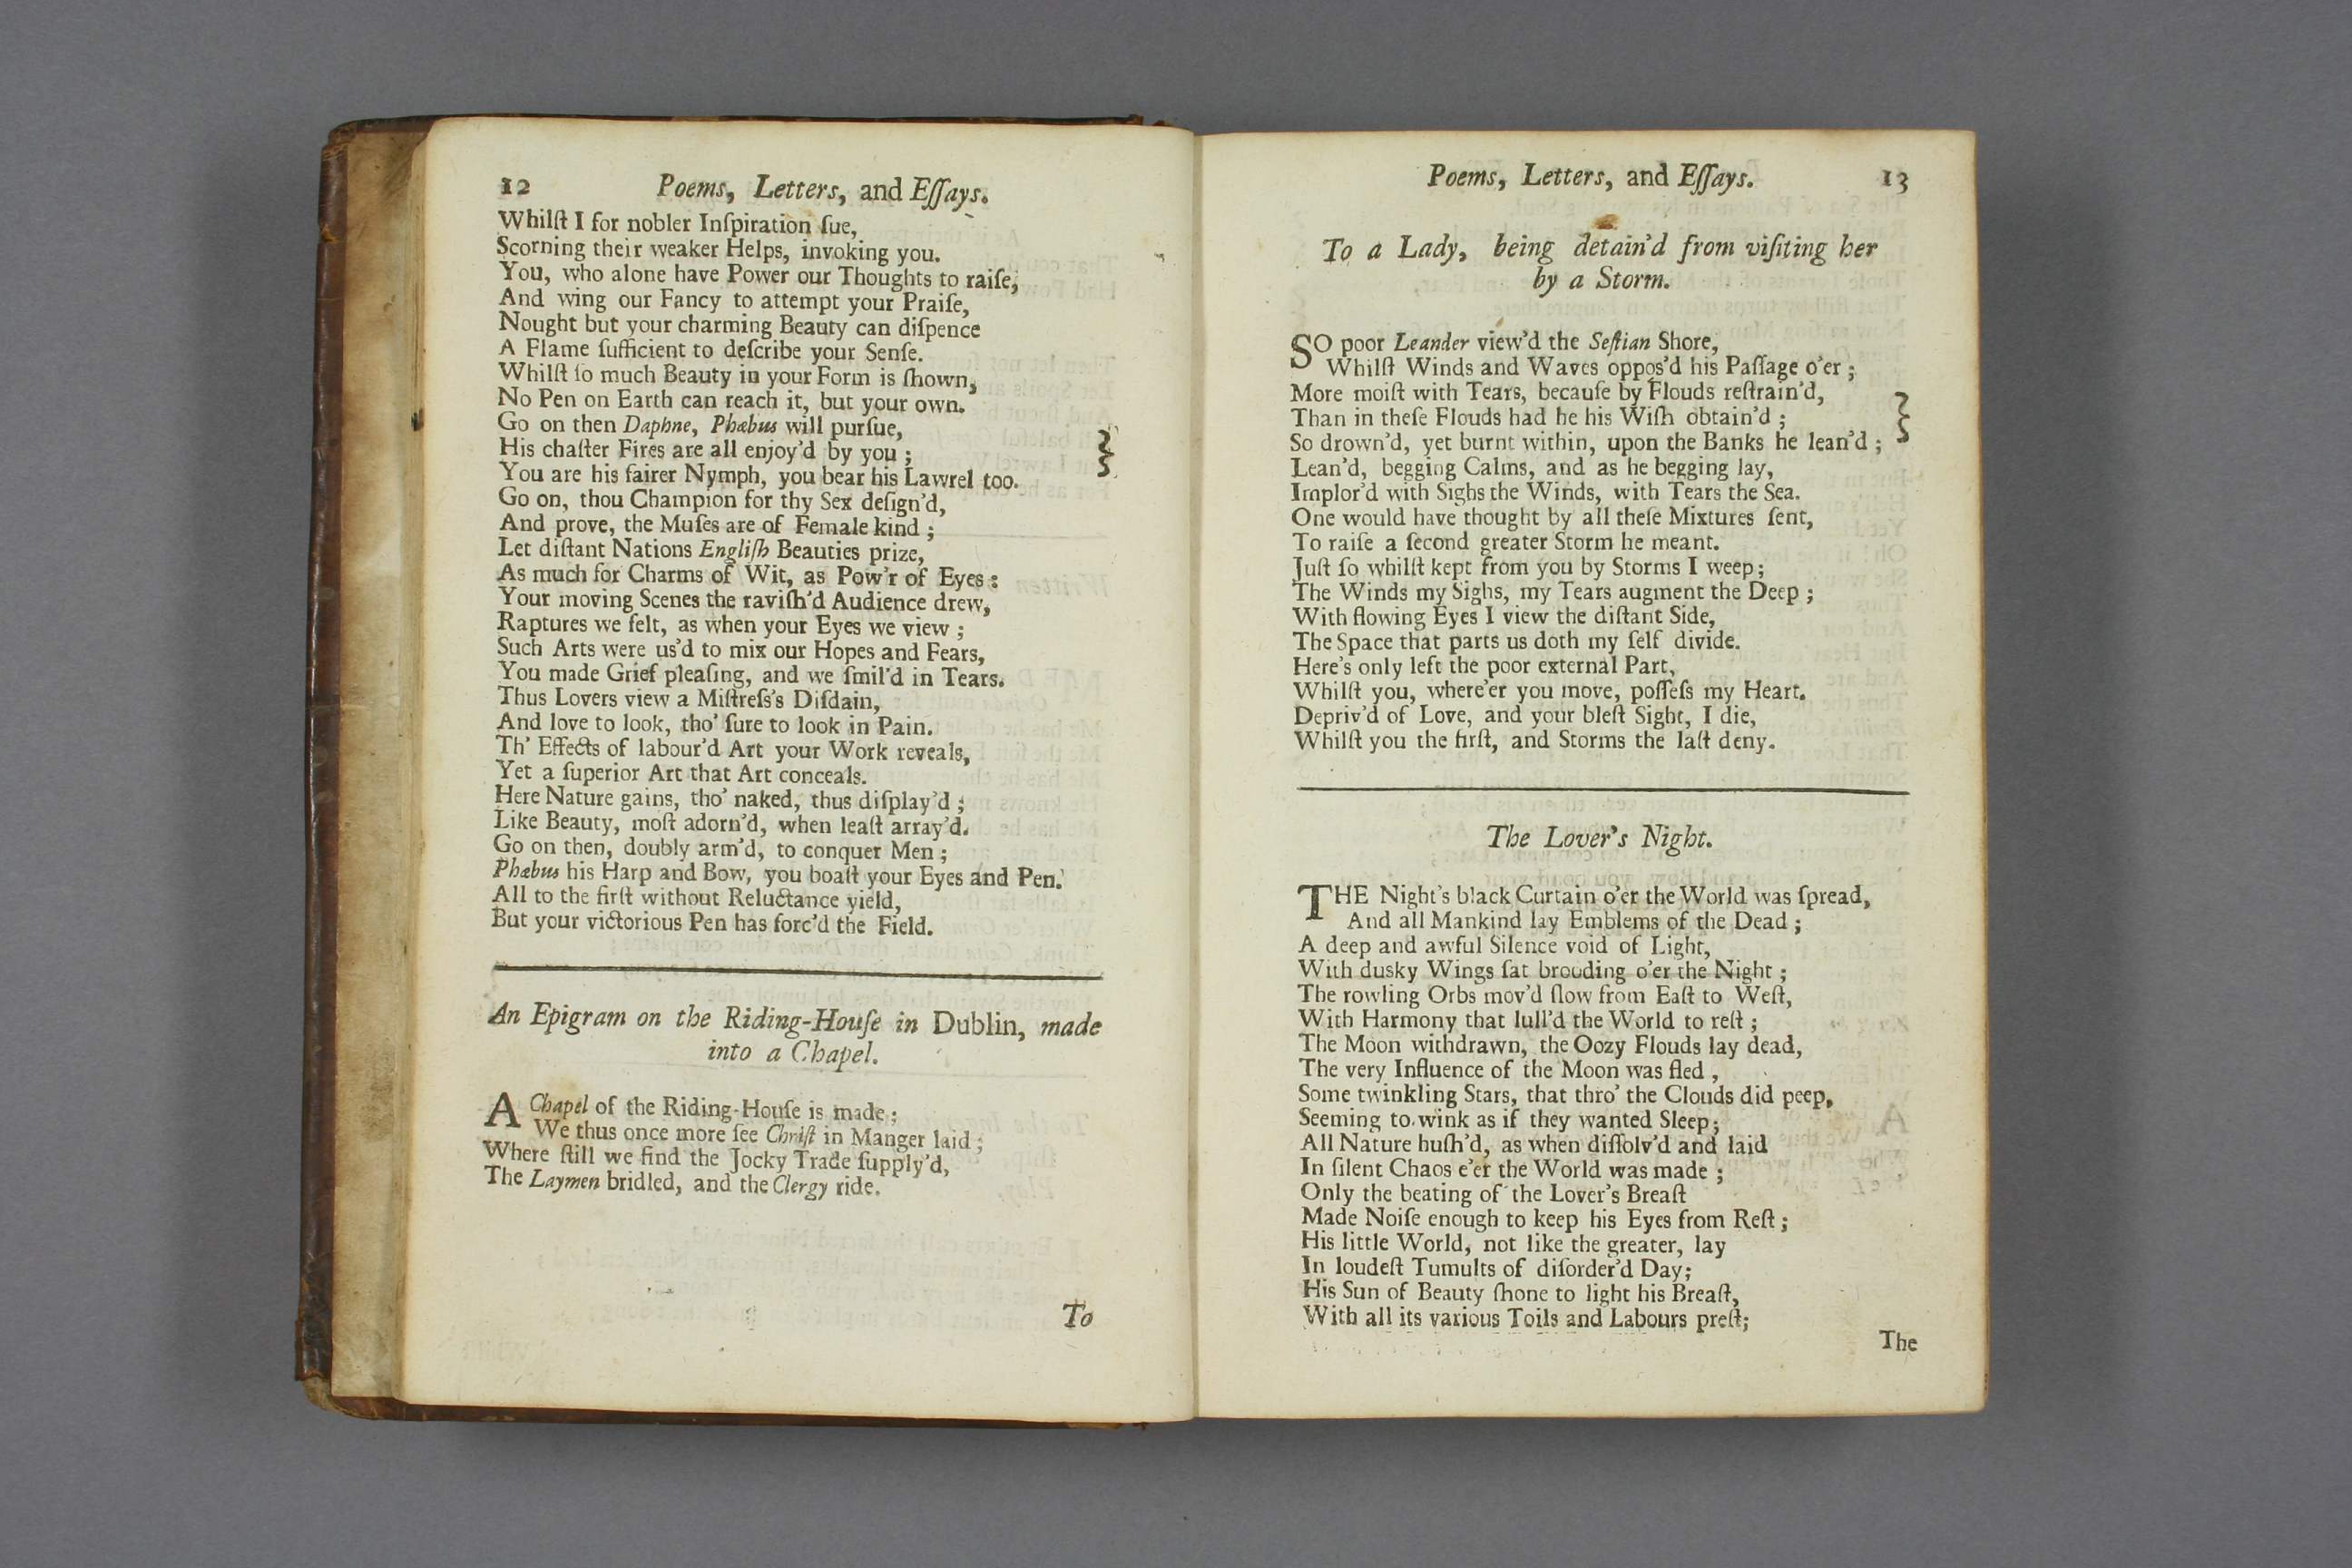 12 Poems, Letters, and Eſſays.
Whilſt I for nobler Inſpiration ſue,
Scorning their weaker Helps, invoking you.
You, who alone have Power our Thoughts to raiſe,
And wing our Fancy to attempt your Praiſe,
Nought but your charming Beauty can diſpence
A Flame ſufficient to deſcribe your Senſe.
Whilſt ſo much Beauty in your Form is ſhown,
No Pen on Earth can reach it, but your own.
Go on then Daphne, Phœbus will purſue,
His chaſter Fires are all enjoy'd by you ;
You are his fairer Nymph, you bear his Lawrel too.
Go on, thou Champion for thy Sex deſign'd,
And prove, the Muſes are of Female kind ;
Let diſtant Nations Engliſh Beauties prize,
As much for Charms of Wit, as Pow'r of Eyes :
Your moving Scenes the raviſh'd Audience drew,
Raptures we felt, as when your Eyes we view ;
Such Arts were us'd to mix our Hopes and Fears,
You made Grief pleaſing, and we ſmil'd in Tears.
Thus Lovers view a Miſtreſs's Diſdain,
And love to look, tho' ſure to look in Pain.
Th' Effects of labour'd Art your Work reveals,
Yet a ſuperior Art that Art conceals.
Here Nature gains, tho' naked, thus diſplay'd ;
Like Beauty, moſt adorn'd, when leaſt array'd.
Go on then, doubly arm'd, to conquer Men ;
Phœbus his Harp and Bow, you boaſt your Eyes and Pen.
All to the firſt without Reluctance yield,
But your victorious Pen has forc'd the Field.
An Epigram on the Riding-Houſe in Dublin, made
into a Chapel.
A Chapel of the Riding-Houſe is made ;
We thus once more ſee Chriſt in Manger laid ;
Where ſtill we find the Jocky Trade ſupply'd,
The Laymen bridled, and the Clergy ride.
To
Poems, Letters, and Eſſays. 13
To a Lady, being detain'd from viſiting her
by a Storm.
SO poor Leander view'd the Seſtian Shore,
Whilſt Winds and Waves oppos'd his Paſſage o'er ;
More moiſt with Tears, becauſe by Flouds reſtrain'd,
Than in theſe Flouds had he his Wiſh obtain'd ;
So drown'd, yet burnt within, upon the Banks he lean'd ;
Lean'd, begging Calms, and as he begging lay,
Implor'd with Sighs the Winds, with Tears the Sea.
One would have thought by all theſe Mixtures ſent,
To raiſe a ſecond greater Storm he meant.
Juſt ſo whilſt kept from you by Storms I weep ;
The Winds my Sighs, my Tears augment the Deep ;
With flowing Eyes I view the diſtant Side,
The Space that parts us doth my ſelf divide.
Here's only left the poor external Part,
Whilſt you, where'er you move, poſſeſs my Heart.
Depriv'd of Love, and your bleſt Sight, I die,
Whilſt you the firſt, and Storms the laſt deny.
The Lover's Night.
THE Night's black Curtain o'er the World was ſpread,
And all Mankind lay Emblems of the Dead ;
A deep and awful Silence void of Light,
With dusky Wings ſat brouding o'er the Night ;
The rowling Orbs mov'd ſlow from Eaſt to Weſt,
With Harmony that lull'd the World to reſt ;
The Moon withdrawn, the Oozy Flouds lay dead,
The very Influence of the Moon was fled ,
Some twinkling Stars, that thro' the Clouds did peep,
Seeming to wink as if they wanted Sleep ;
All Nature huſh'd, as when diſſolv'd and laid
In ſilent Chaos e'er the World was made ;
Only the beating of the Lover's Breaſt
Made Noiſe enough to keep his Eyes from Reſt ;
His little World, not like the greater, lay
In loudeſt Tumults of diſorder'd Day;
His Sun of Beauty ſhone to light his Breaſt,
With all its various Toils and Labours preſt;
The